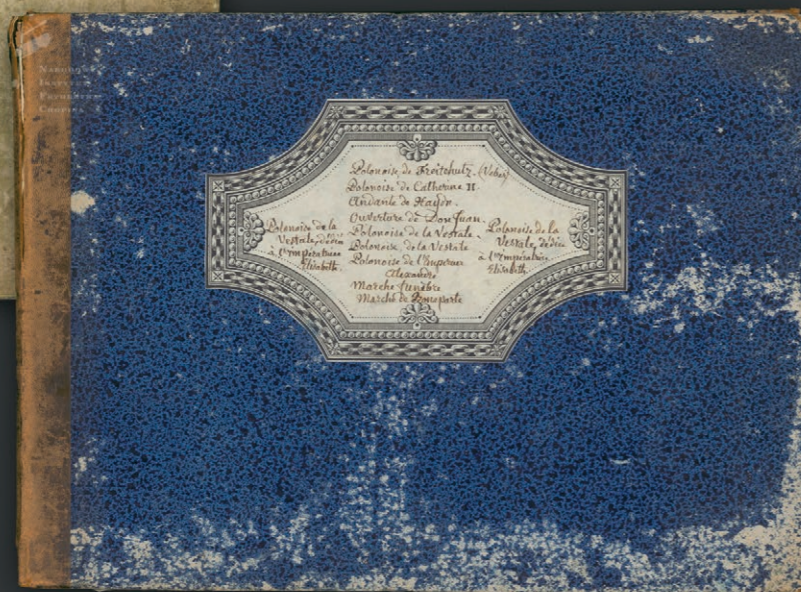 NARODOWY
INSTYTUT
FRYDERYKA
CHOPINA
Polonoise de Freichutz. (Veber)
Polonoise de Catherine II
Andante de Haydn.
Ouverture de Don Juan.
Polonoise de la Vestale.
Polonoise de la Vestale
Polonoise de l'Empereur
Alexandre
Marche funèbre
Marche de Bonaparte
Polonoise de la
Vestale, dédiée
à l'Impératrice
Elisabeth.
Polonoise de la
Vestale, dédiée
à l'Impératrice
Elisabeth